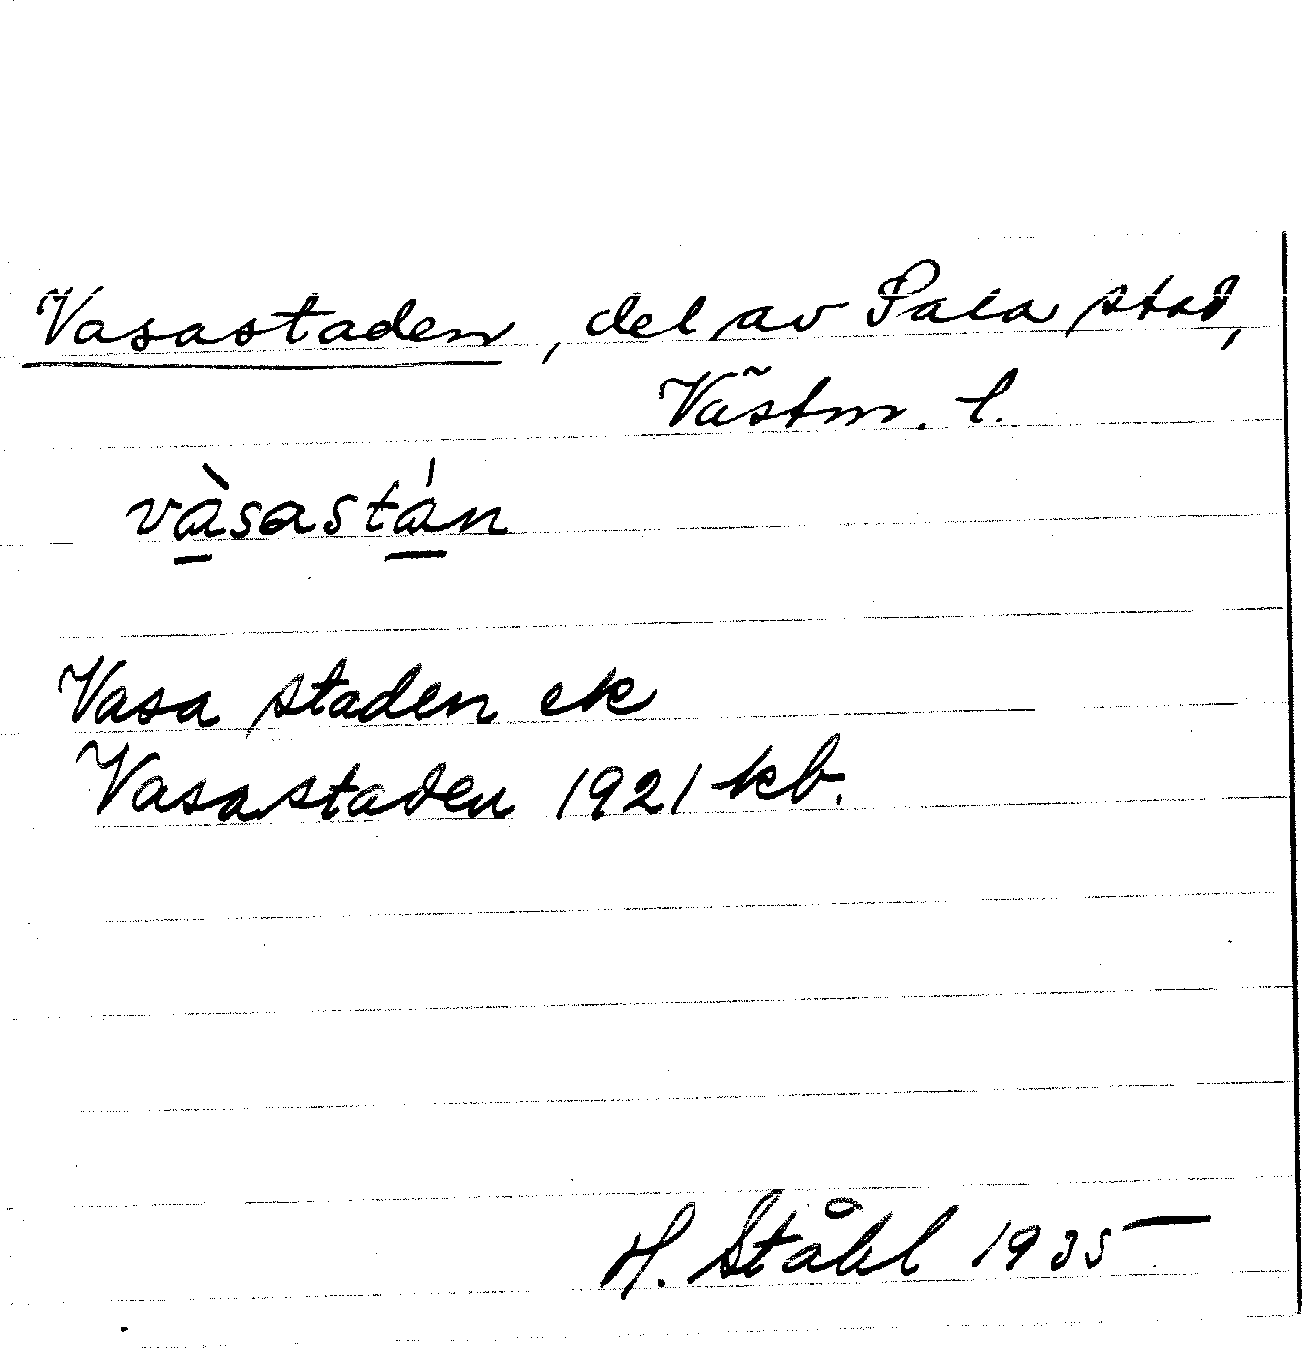 Vasastaden, del av Sala stad,
Västm. l.
vàsastán
Vasa staden ek
Vasastaden 1921 kb.
H. Ståhl 1935